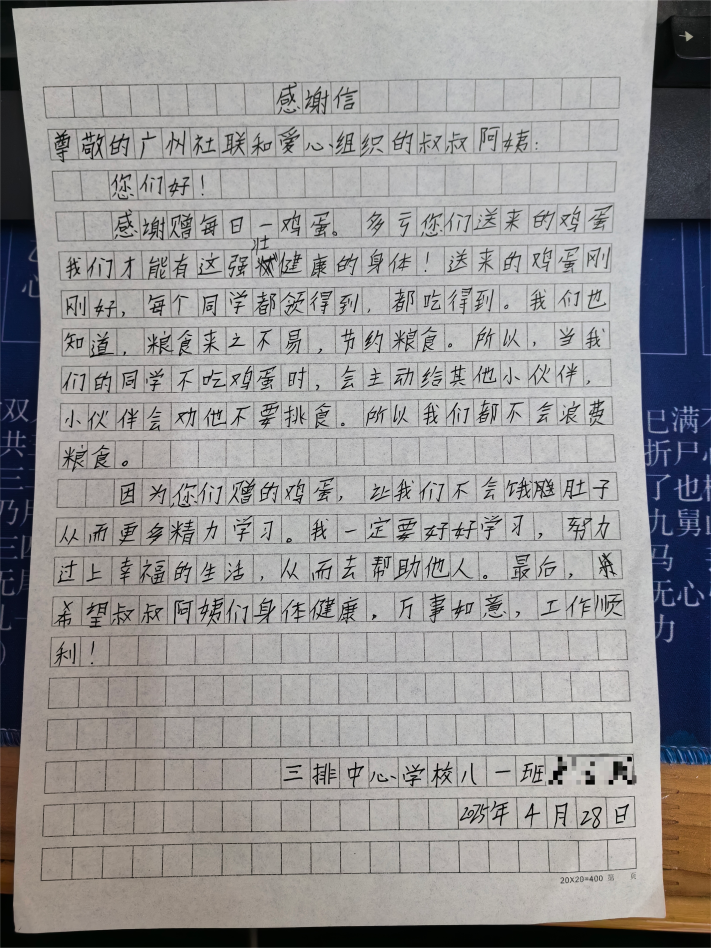 感谢信
尊敬的广州社联和爱心组织的叔叔阿姨:
您们好!
感谢赠每日一鸡蛋。多亏您们送来的鸡蛋
我们才能有这强壮健康的身体!送来的鸡蛋刚
刚好,每个同学都领得到,都吃得到。我们也
知道,粮食来之不易,节约粮食。所以,当我
们的同学不吃鸡蛋时,会主动给其他小伙伴,
小伙伴会劝他不要挑食。所以我们都不会浪费
粮食。
因为您们赠的鸡蛋,让我们不会饿肚子
从而更多精力学习。我一定要好好学习,努力
过上幸福的生活,从而去帮助他人。最后,
希望叔叔阿姨们身体健康,万事如意,工作顺
利!
三排中心学校八一班
2025年4月28日
20X20=400 页
双
共
三
乃
三四
无
九一
心
巳满
折尸心
了也
九舅
马
无心
力